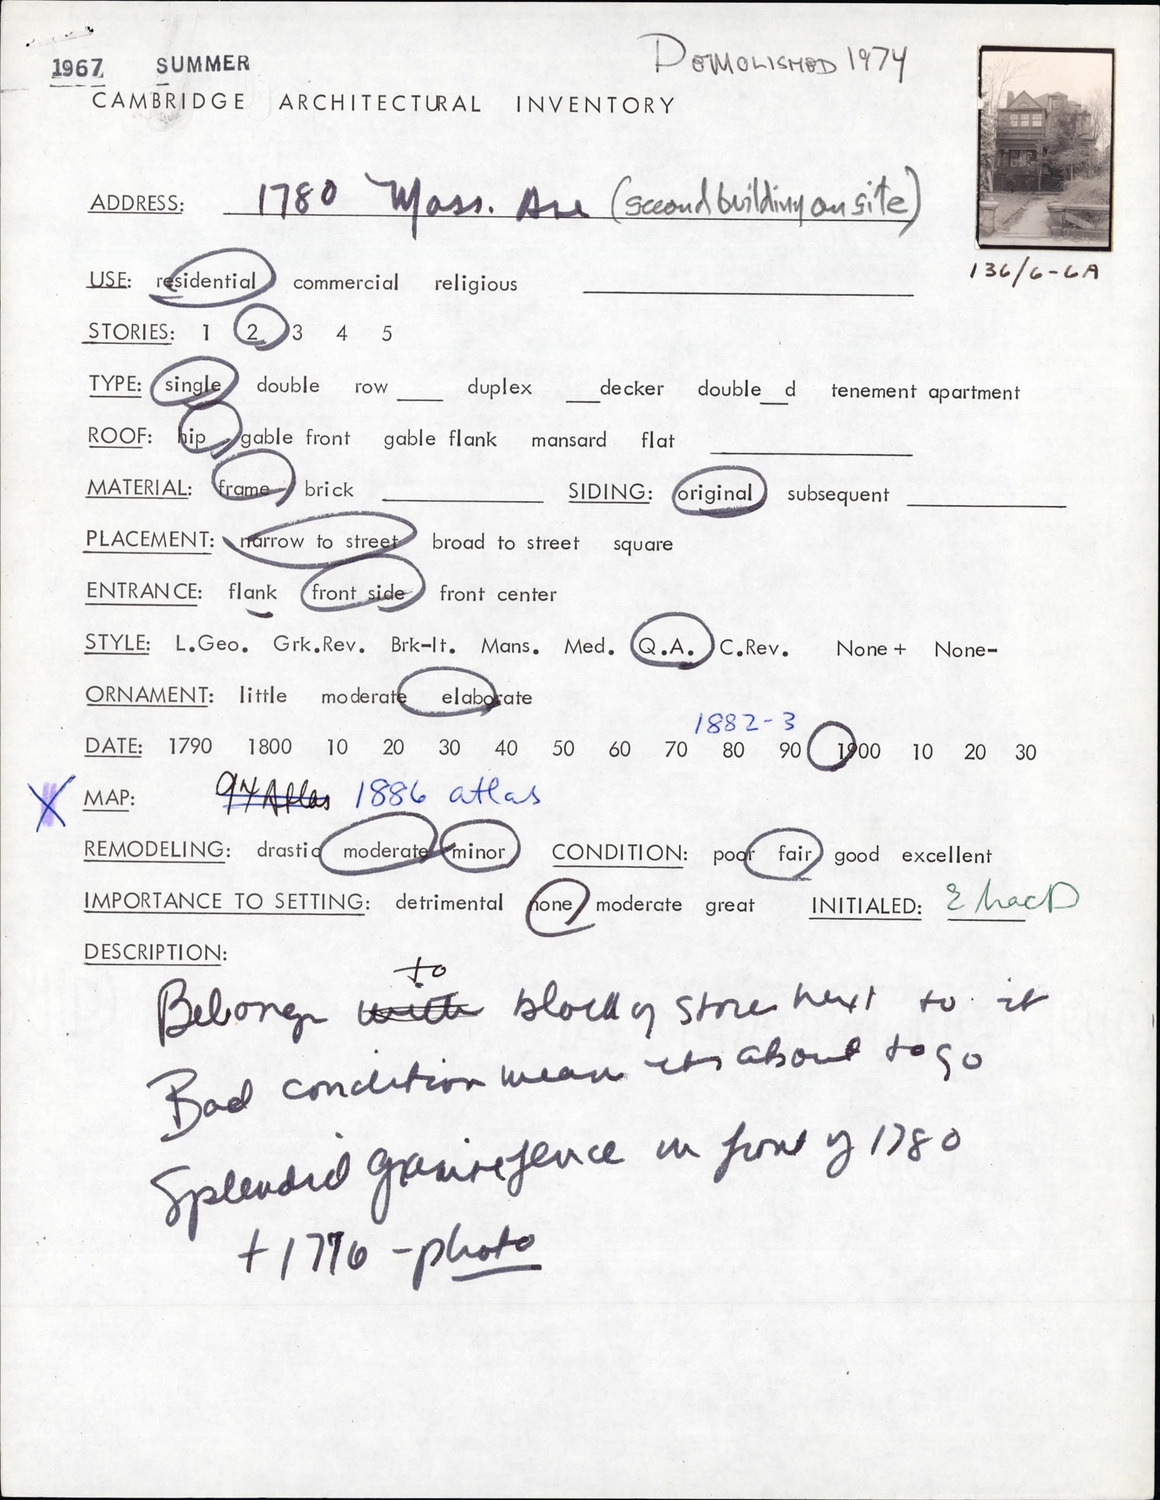 1967 SUMMER
DEMOLISHED 1974
CAMBRIDGE ARCHITECTURAL INVENTORY
ADDRESS: 1780 Mass. Ave (second building on site)
136/6-6A
USE: residential commercial religious
STORIES: 1 2 3 4 5
TYPE: single double row ___ duplex ___decker double__d tenement apartment
ROOF: hip gable front gable flank mansard flat
MATERIAL: frame brick SIDING: original subsequent
PLACEMENT: narrow to street broad to street square
ENTRANCE: flank front side front center
STYLE: L.Geo. Grk.Rev. Brk-It. Mans. Med. Q.A. C.Rev. None+ None-
ORNAMENT: little moderate elaborate
1882-3
DATE: 1790 1800 10 20 30 40 50 60 70 80 90 1900 10 20 30
X MAP: 94 Atlas 1886 atlas
REMODELING: drastic moderate minor CONDITION: poor fair good excellent
IMPORTANCE TO SETTING: detrimental none moderate great INITIALED:
DESCRIPTION:
to
Belongs with block of stores next to it
Bad condition means its about to go
Splendid granite fence in front of 1780
+ 1776 - photo